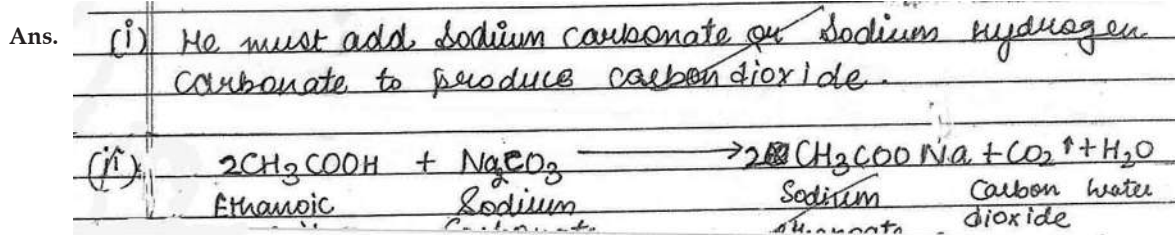 Ans. (i) He must add Sodium carbonate or Sodium Hydrogen
carbonate to produce carbon dioxide.
(ii) 2CH₃COOH + Na₂CO₃ → 2CH₃COONa + CO₂↑ + H₂O
Ethanoic Sodium Sodium Carbon water
dioxide